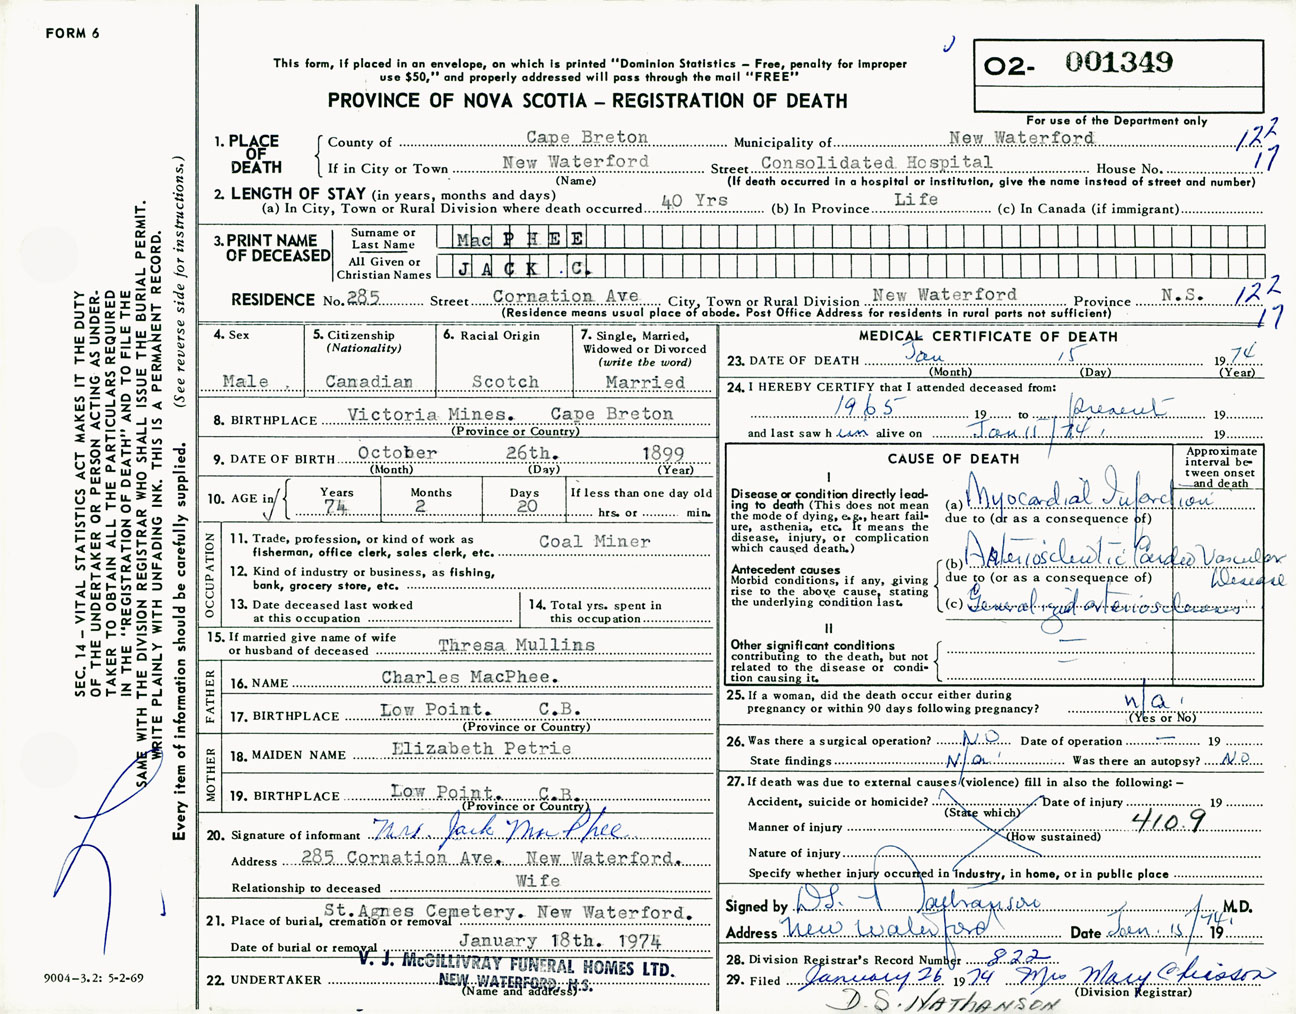 FORM 6
This form, if placed in an envelope, on which is printed "Dominion Statistics – Free, penalty for improper
use $50," and properly addressed will pass through the mail "FREE"
PROVINCE OF NOVA SCOTIA – REGISTRATION OF DEATH
O2- 001349
For use of the Department only
1. PLACE OF DEATH
County of Cape Breton Municipality of New Waterford 122
If in City or Town New Waterford Street Consolidated Hospital House No. 17
(Name) (If death occurred in a hospital or institution, give the name instead of street and number)
2. LENGTH OF STAY (in years, months and days)
(a) In City, Town or Rural Division where death occurred 40 Yrs (b) In Province Life (c) In Canada (if immigrant)
3. PRINT NAME OF DECEASED
Surname or Last Name MacPHEE
All Given or Christian Names JACK .C.
RESIDENCE No. 285 Street Cornation Ave City, Town or Rural Division New Waterford Province N.S. 122
(Residence means usual place of abode. Post Office Address for residents in rural parts not sufficient) 17
4. Sex
Male .
5. Citizenship
(Nationality)
Canadian
6. Racial Origin
Scotch
7. Single, Married,
Widowed or Divorced
(write the word)
Married
8. BIRTHPLACE Victoria Mines. Cape Breton
(Province or Country)
9. DATE OF BIRTH October 26th. 1899
(Month) (Day) (Year)
10. AGE in
Years Months Days If less than one day old
74 2 20 hrs. or min.
OCCUPATION
11. Trade, profession, or kind of work as
fisherman, office clerk, sales clerk, etc. Coal Miner
12. Kind of industry or business, as fishing,
bank, grocery store, etc.
13. Date deceased last worked
at this occupation
14. Total yrs. spent in
this occupation
15. If married give name of wife
or husband of deceased Thresa Mullins
FATHER
16. NAME Charles MacPhee.
17. BIRTHPLACE Low Point. C.B.
(Province or Country)
MOTHER
18. MAIDEN NAME Elizabeth Petrie
19. BIRTHPLACE Low Point. C.B.
(Province or Country)
20. Signature of informant Mrs. Jack MacPhee
Address 285 Cornation Ave. New Waterford.
Relationship to deceased Wife
21. Place of burial, cremation or removal St.Agnes Cemetery. New Waterford.
Date of burial or removal January 18th. 1974
22. UNDERTAKER V. J. McGILLIVRAY FUNERAL HOMES LTD.
NEW WATERFORD, N.S.
(Name and address)
MEDICAL CERTIFICATE OF DEATH
23. DATE OF DEATH Jan 15 1974
(Month) (Day) (Year)
24. I HEREBY CERTIFY that I attended deceased from:
1965 19 to present 19
and last saw him alive on Jan 11/74 19
CAUSE OF DEATH
Approximate
interval be-
tween onset
and death
I
Disease or condition directly lead-
ing to death (This does not mean
the mode of dying, e.g., heart fail-
ure, asthenia, etc. It means the
disease, injury, or complication
which caused death.)
(a) Myocardial Infarction
due to (or as a consequence of)
Antecedent causes
Morbid conditions, if any, giving
rise to the above cause, stating
the underlying condition last.
(b) Arteriosclerotic Cardio Vascular
Disease
due to (or as a consequence of)
(c) Generalized arteriosclerosis
II
Other significant conditions
contributing to the death, but not
related to the disease or condi-
tion causing it.
25. If a woman, did the death occur either during
pregnancy or within 90 days following pregnancy? n/a
(Yes or No)
26. Was there a surgical operation? NO Date of operation – 19
State findings N/a Was there an autopsy? NO
27. If death was due to external causes (violence) fill in also the following: –
Accident, suicide or homicide? Date of injury 19
(State which)
Manner of injury 410.9
(How sustained)
Nature of injury
Specify whether injury occurred in industry, in home, or in public place
Signed by D.S. Nathanson M.D.
Address New Waterford Date Jan. 15/74 19
28. Division Registrar's Record Number 822
29. Filed January 26 1974 Mrs Mary Chiasson
(Division Registrar)
D.S. NATHANSON
SEC. 14 – VITAL STATISTICS ACT MAKES IT THE DUTY
OF THE UNDERTAKER OR PERSON ACTING AS UNDER-
TAKER TO OBTAIN ALL THE PARTICULARS REQUIRED
IN THE "REGISTRATION OF DEATH" AND TO FILE THE
SAME WITH THE DIVISION REGISTRAR WHO SHALL ISSUE THE BURIAL PERMIT.
WRITE PLAINLY WITH UNFADING INK. THIS IS A PERMANENT RECORD.
Every item of information should be carefully supplied. (See reverse side for instructions.)
9004–3.2: 5-2-69